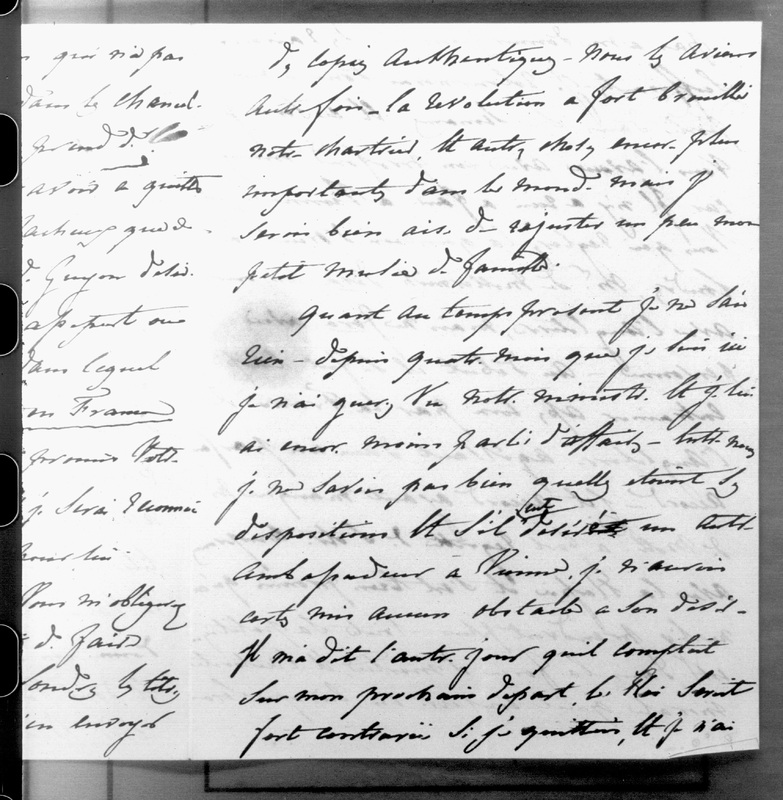 qui n'a pas
dans la chancel-
grand d.
avoir a quitté
que d.
d. Guyon désir.
dans lequel
en France
promis votr.
j. serai reconnoi
pour lui
Vous m'obligerez
d. fair.
Londres les titres
en envoyer
d, copies authentiques - nous les avions
autrefois - la révolution a fort brouillé
notr. chartrier, et autr, chos, encor. plus
importantes dans le mond. mais j'
serois bien ais. d. rajuster un peu mon
petit d. famill.
quant au temps présent j. ne sais
rien - depuis quatr. mois que j. suis ici
j. n'ai guer, vu notr. ministr. et j. lui
ai encor. moins parlé d'affaires - entr. nous
j. ne savois pas bien quelles étoient ses
dispositions et s'il eut désiré un autr.
ambassadeur à Vienne, j. n'aurois
certes mis aucun obstacle a son désir -
Il m'a dit l'autr. jour qu'il comptait
sur mon prochain départ, le Roi serait
fort contrarié si je quittois, et j. n'ai